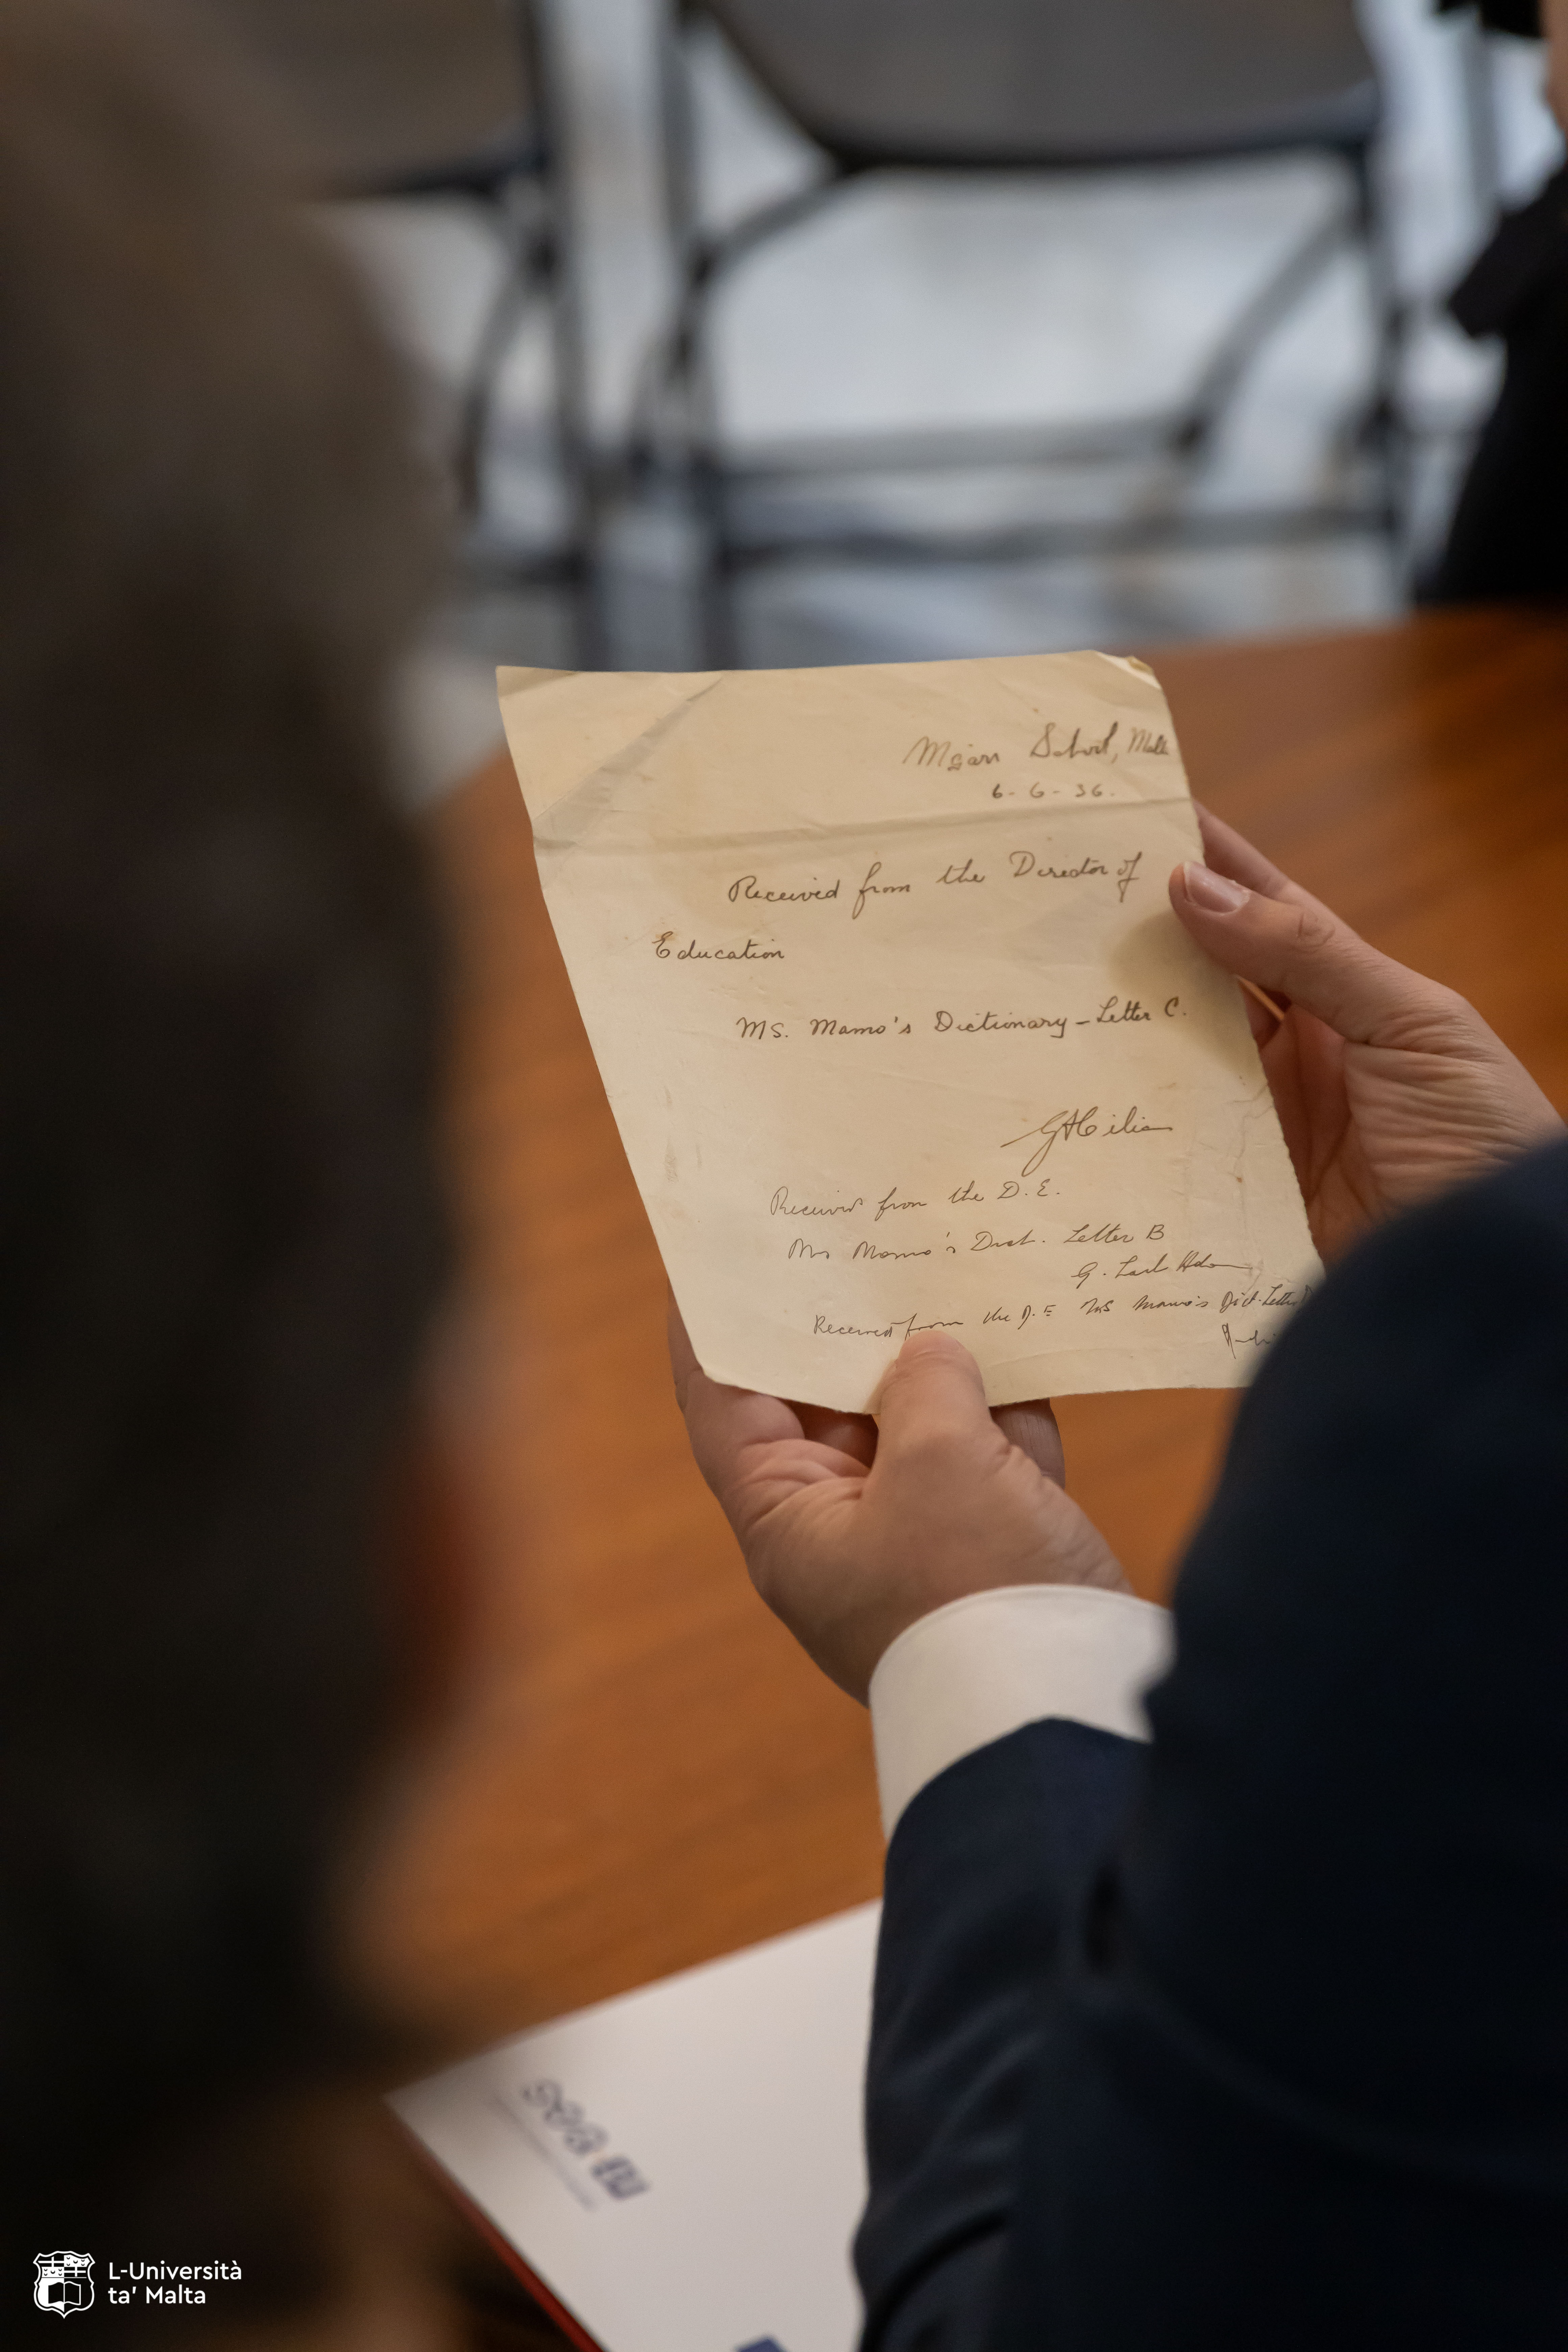 Mġarr School, Malta
6-6-36.
Received from the Director of
Education
MS. Mamo's Dictionary - Letter C.
Received from the D.E.
Ms Mamo's Dict. Letter B
Received from the D.E MS Mamo's Dict. Letter
L-Università
ta' Malta